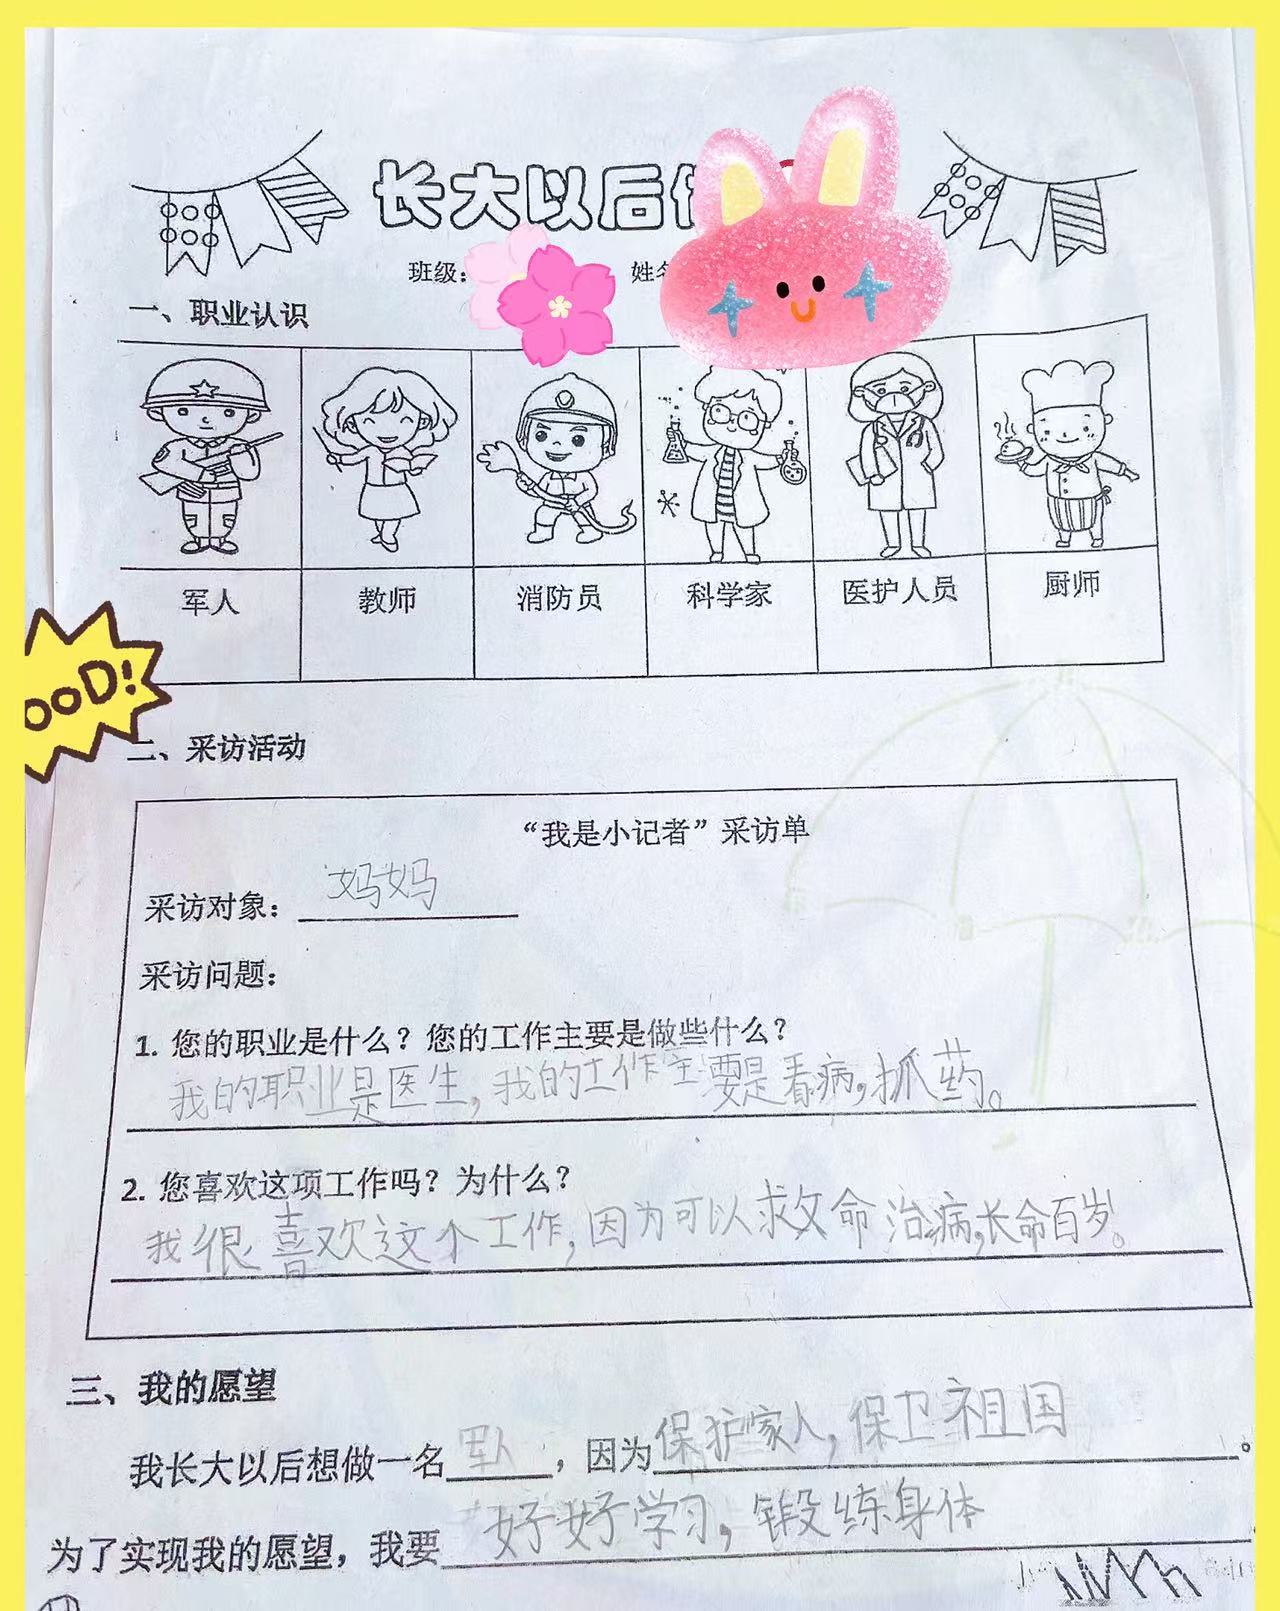 长大以后
班级：
姓名
一、职业认识
军人 教师 消防员 科学家 医护人员 厨师
OOD!
二、采访活动
“我是小记者”采访单
采访对象：妈妈
采访问题：
1. 您的职业是什么？您的工作主要是做些什么？
我的职业是医生，我的工作主要是看病，抓药。
2. 您喜欢这项工作吗？为什么？
我很喜欢这个工作，因为可以救命治病，长命百岁。
三、我的愿望
我长大以后想做一名军人，因为保护家人，保卫祖国。
为了实现我的愿望，我要好好学习，锻练身体